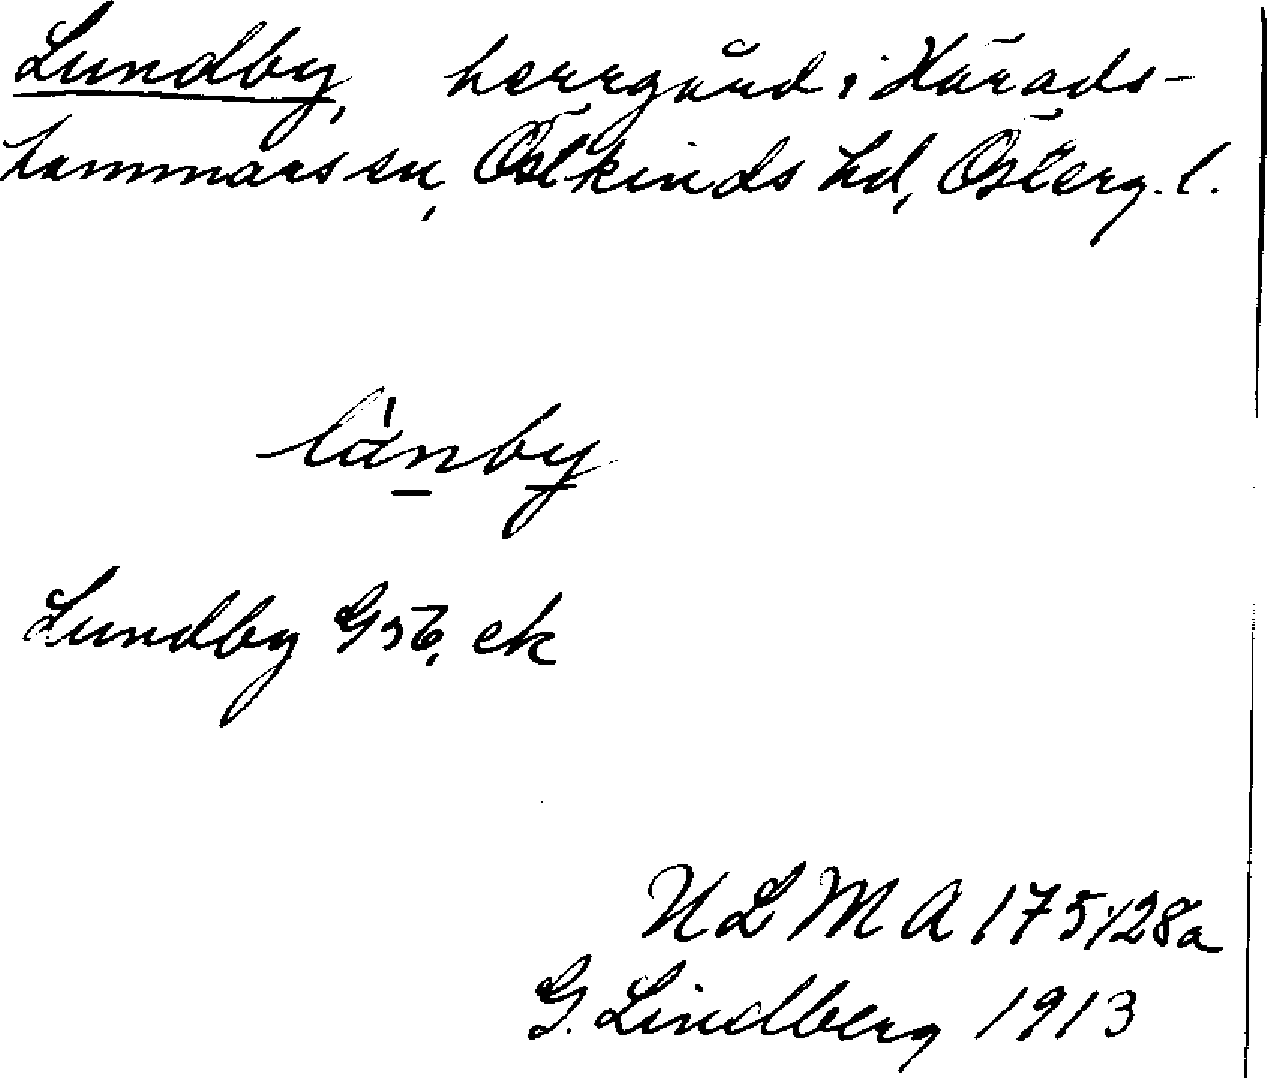 Lundby, herrgård i Härads-
hammars sn, Östkinds hd, Österg. l.
lànby
Lundby G56, ek
ULMA 175:28a
G. Lindberg 1913